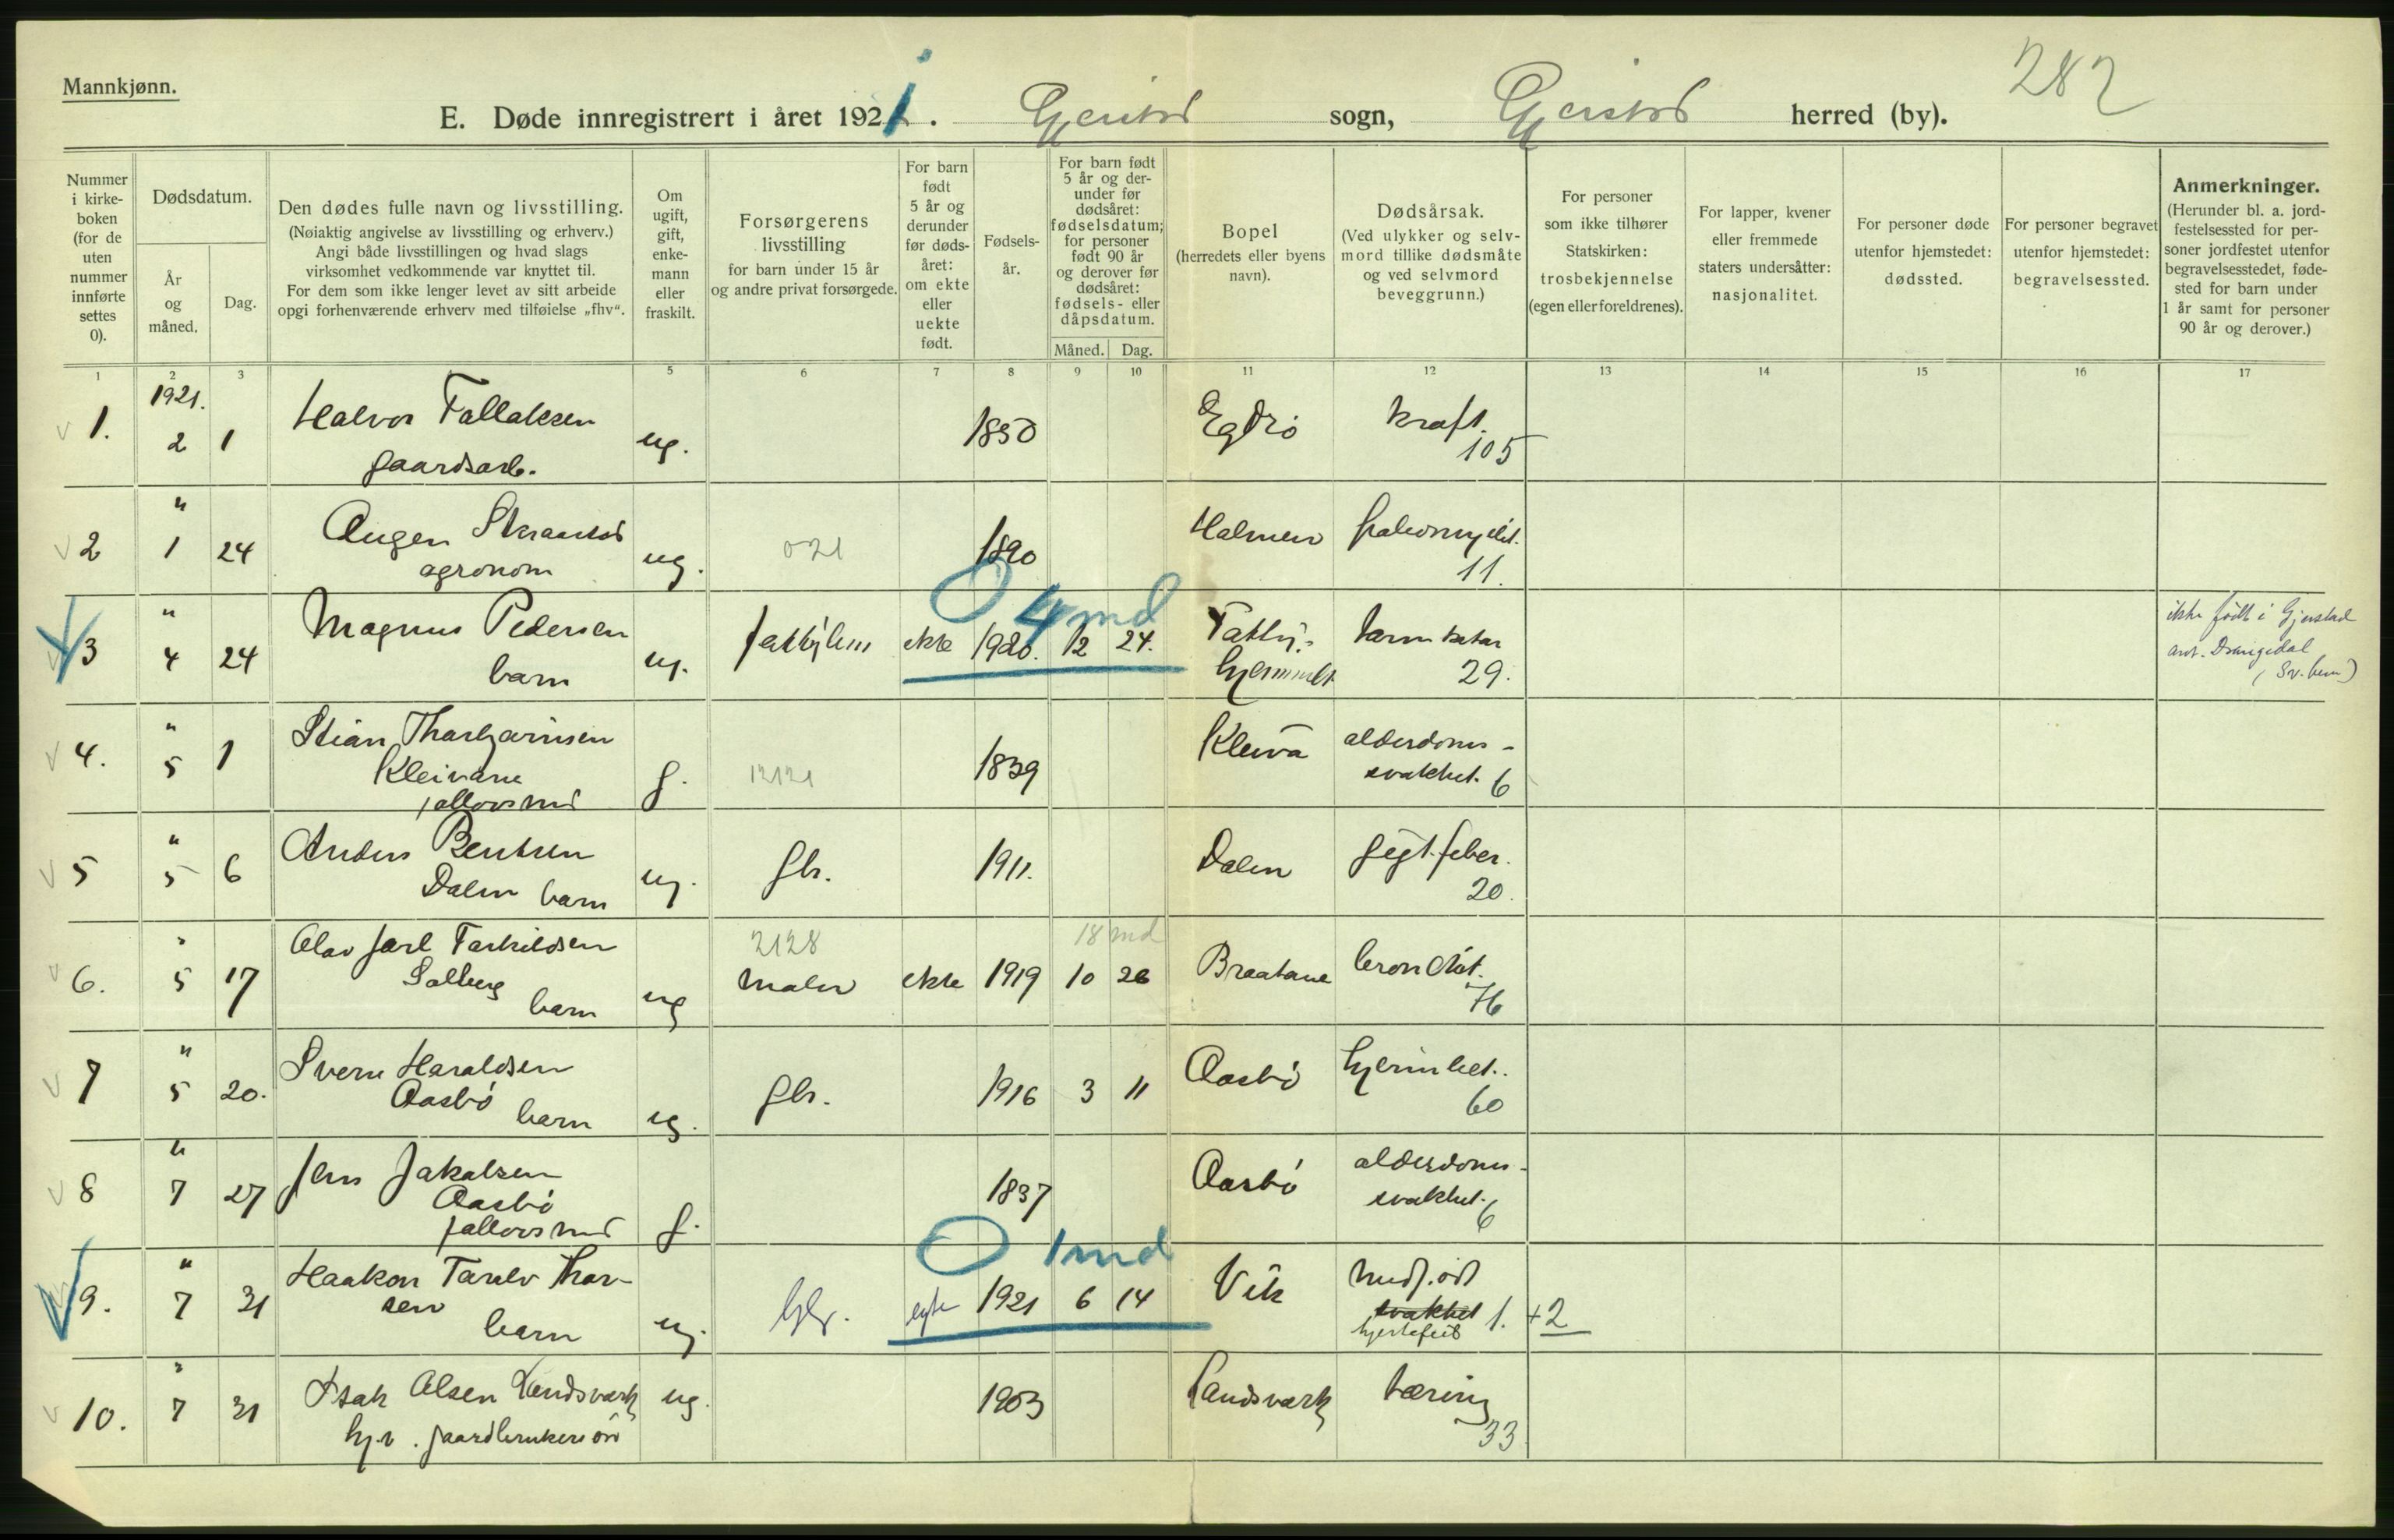 Mannkjønn.
282
E. Døde innregistrert i året 1921. Gjerstad sogn, Gjerstad herred (by).
Nummer i kirke- boken (for de uten nummer innførte settes 0).
Dødsdatum.
År og måned.
Dag.
Den dødes fulle navn og livsstilling.
(Nøiaktig angivelse av livsstilling og erhverv.)
Angi både livsstillingen og hvad slags
virksomhet vedkommende var knyttet til.
For dem som ikke lenger levet av sitt arbeide
opgi forhenværende erhverv med tilføielse „fhv“.
Om ugift, gift, enke- mann eller fraskilt.
Forsørgerens
livsstilling
for barn under 15 år
og andre privat forsørgede.
For barn født 5 år og derunder før døds- året: om ekte eller uekte født.
Fødsels- år.
For barn født 5 år og der- under før dødsåret: fødselsdatum; for personer født 90 år og derover før dødsåret: fødsels- eller dåpsdatum.
Måned. Dag.
Bopel
(herredets eller byens
navn).
Dødsårsak.
(Ved ulykker og selv-
mord tillike dødsmåte
og ved selvmord
beveggrunn.)
For personer
som ikke tilhører
Statskirken:
trosbekjennelse
(egen eller foreldrenes).
For lapper, kvener
eller fremmede
staters undersåtter:
nasjonalitet.
For personer døde
utenfor hjemstedet:
dødssted.
For personer begravet
utenfor hjemstedet:
begravelsessted.
Anmerkninger.
(Herunder bl. a. jord-
festelsessted for per-
soner jordfestet utenfor
begravelsesstedet, føde-
sted for barn under
1 år samt for personer
90 år og derover.)
1 2 3 5 6 7 8 9 10 11 12 13 14 15 16 17
1921.
1. 2 1 Halvor Tallaksen ug. 1850 Egdø kræft.
gaardsarb. 105
"
2 1 24 Augen Skraastad ug. 021 1890 Halmen
agronom 11.
O 4 md
"
3 4 24 Magnus Pedersen ug. ekte 1920. 12 24. Fattig- tarmkatar
barn hjemmet 29.
ikke født i Gjerstad
ant. Drangedal
"
4. 5 1 Stian Thorbjørnsen g. 12121 1839 Kleiva alderdoms-
Kleivane svakhet. 6
"
5 5 6 Anders Bentsen ug. gbr. 1911. Dalen gigtfeber.
Dalen barn 20.
"
2128 18 md
6. 5 17 Olav Jarl Tarkildsen ug maler ekte 1919 10 26 Braatane bronchit.
Solberg 76
barn
"
7 5 20. Sverre Haraldsen ug. gbr. 1916 3 11 Aasbø
Aasbø barn 60
"
8 7 27 Jens Jakobsen g. 1837 Aasbø alderdoms-
Aasbø svakhet. 6
O 1 md
"
9. 7 31 Haakon Taralv Thor- ug. gbr. egte 1921 6 14 Vik medf. ød
sen svakhet 1. +2
barn hjertefeil
"
10. 7 31 Isak Olsen Landsværk ug. 1903 Landsværk tæring
hj.v. gaardbrukersøn 33